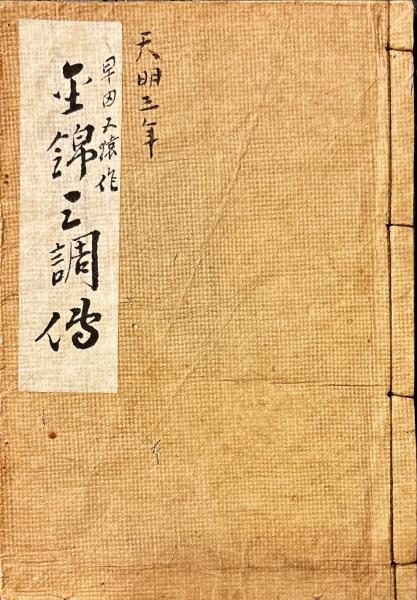 天明三年
早田又猿作
金錦三調傳